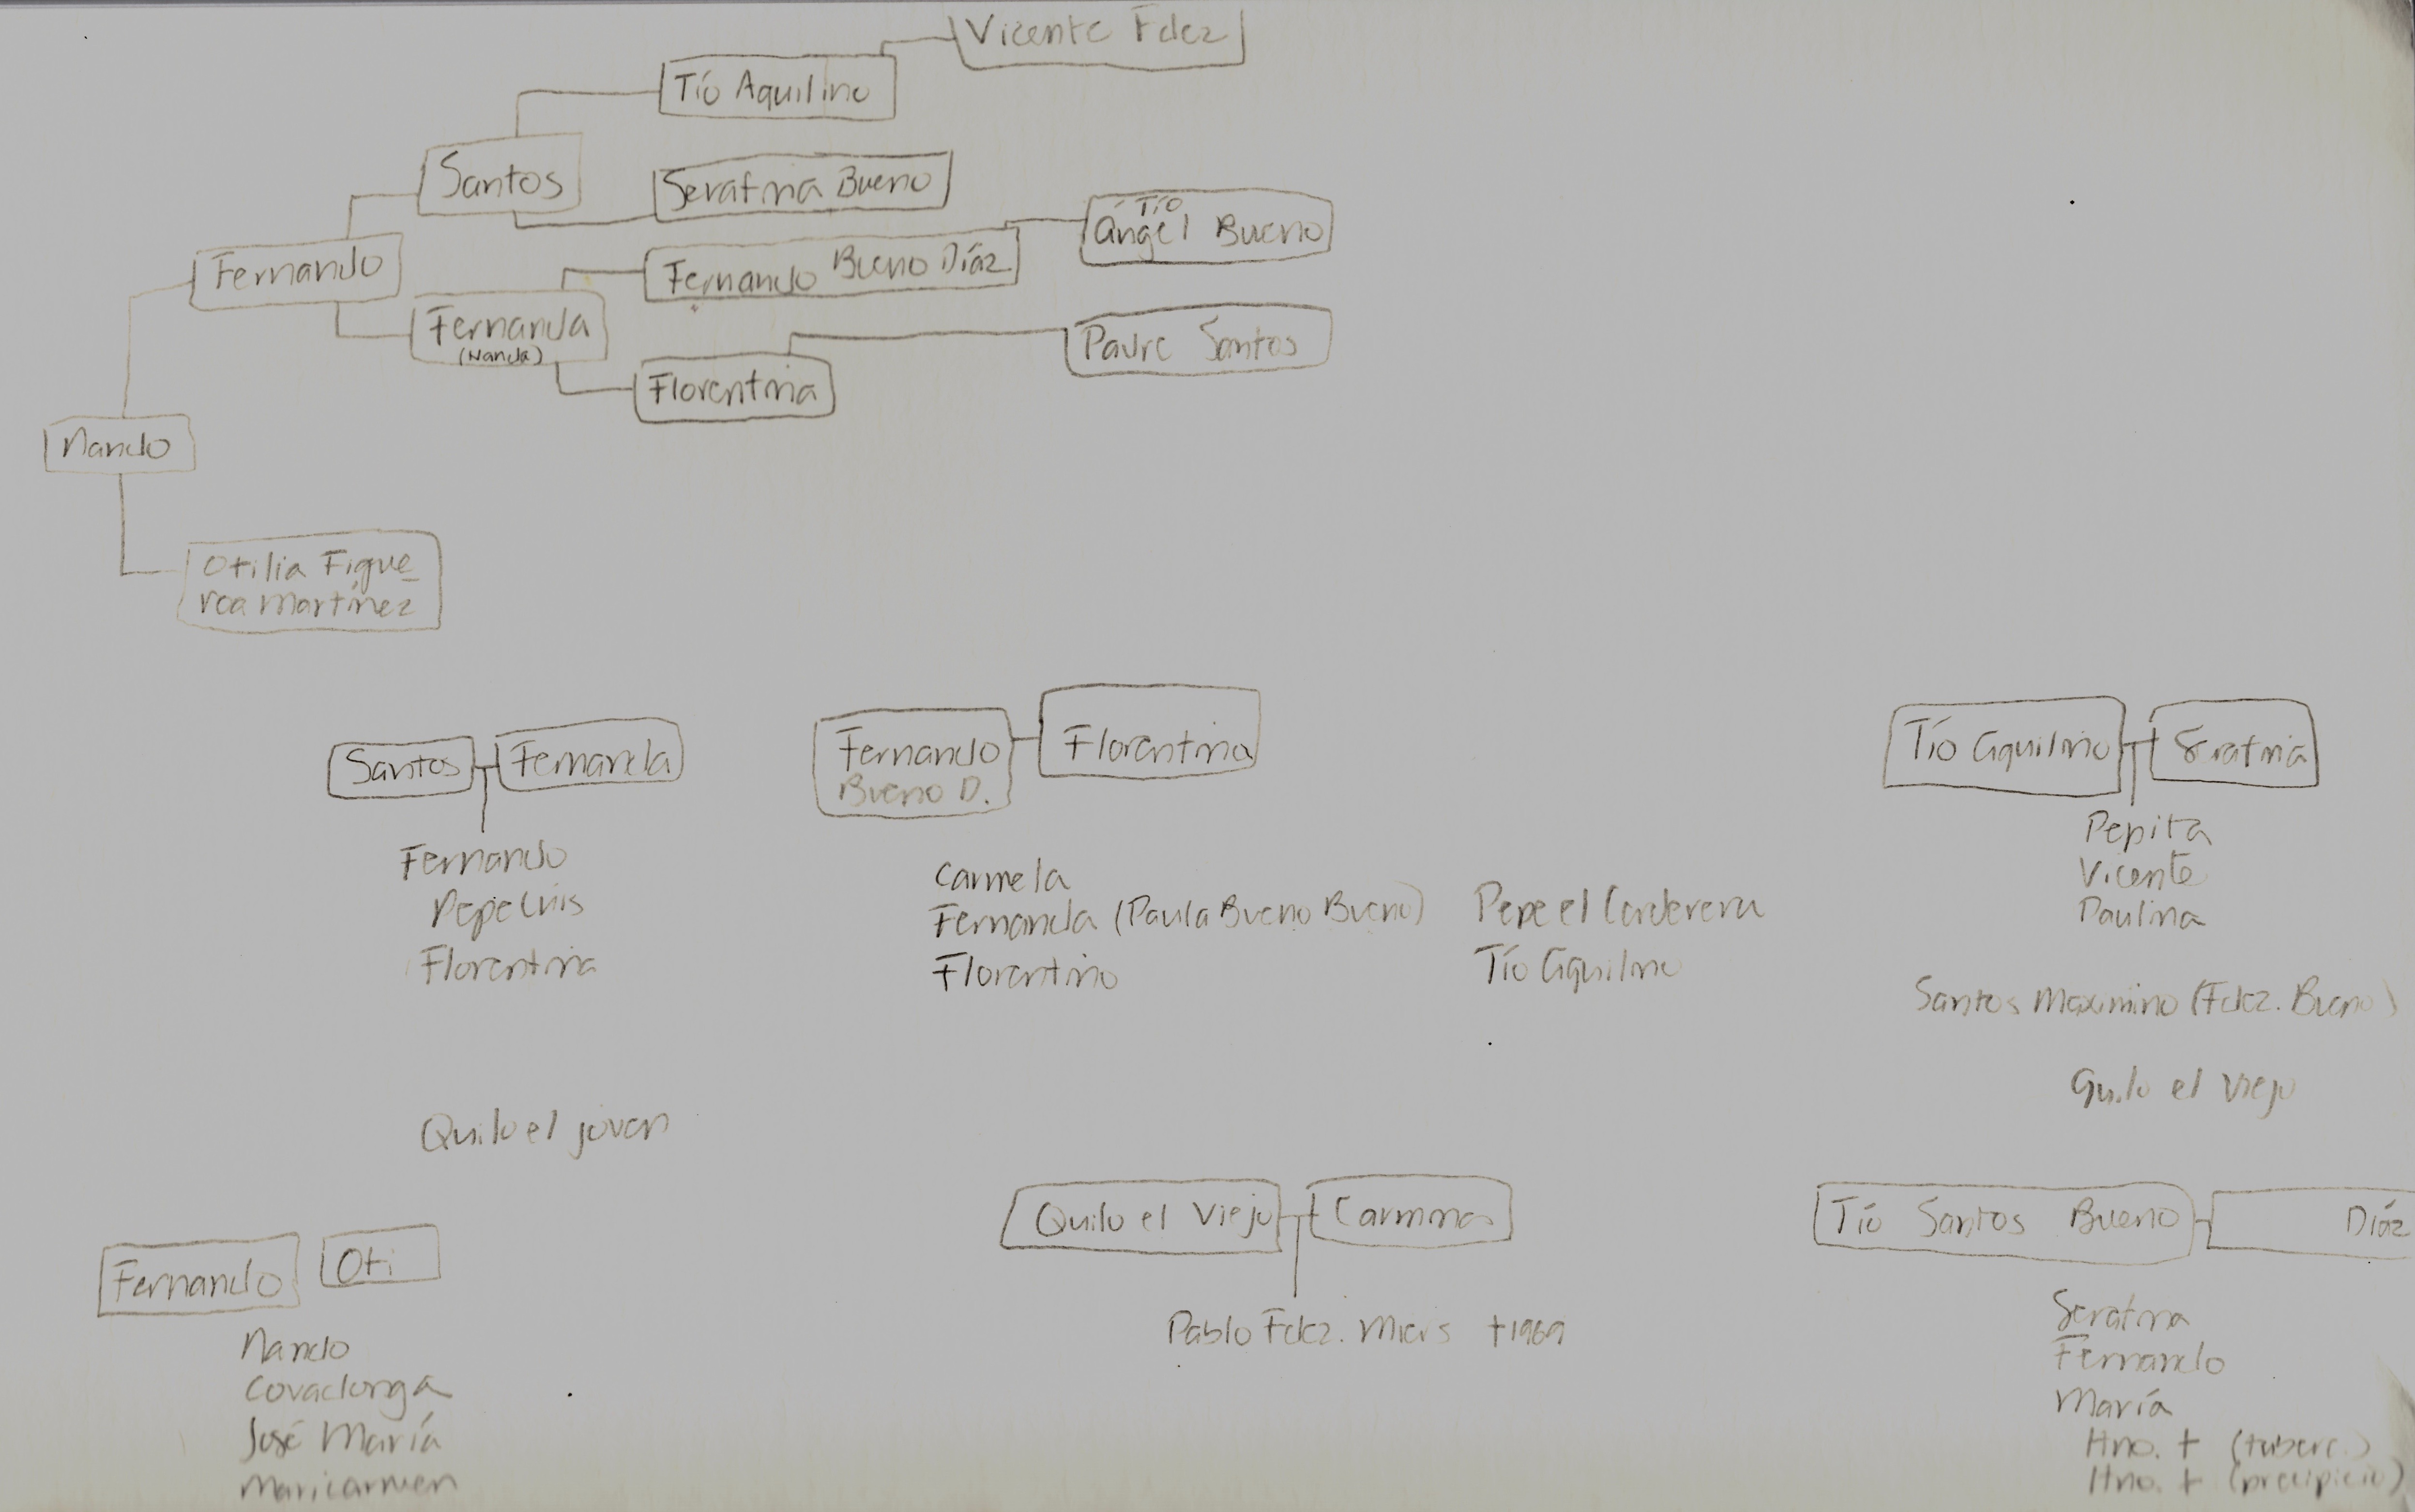 Vicente Fdez
Tío Aquilino
Santos
Serafina Bueno
Tío
Ángel Bueno
Fernando
Fernando Bueno Díaz
Fernanda
(Nanda)
Padre Santos
Florentina
Nando
Otilia Figue
roa Martínez
Santos Fernanda
Fernando
Bueno D.
Florentina
Tío Aquilino Serafina
Fernando
Pepe Luis
Florentina
Carmela
Fernanda (Paula Bueno Bueno)
Florentino
Pepe el Corderera
Tío Aquilino
Pepita
Vicente
Paulina
Santos Maximino (Fdez. Bueno)
Quilo el Viejo
Quilo el joven
Fernando Oti
Nando
Covadonga
José María
Maricarmen
Quilo el Viejo Carmina
Pablo Fdez. Miers †1969
Tío Santos Bueno Díaz
Serafina
Fernando
María
Hno. † (tuberc.)
Hno. † (precipicio)